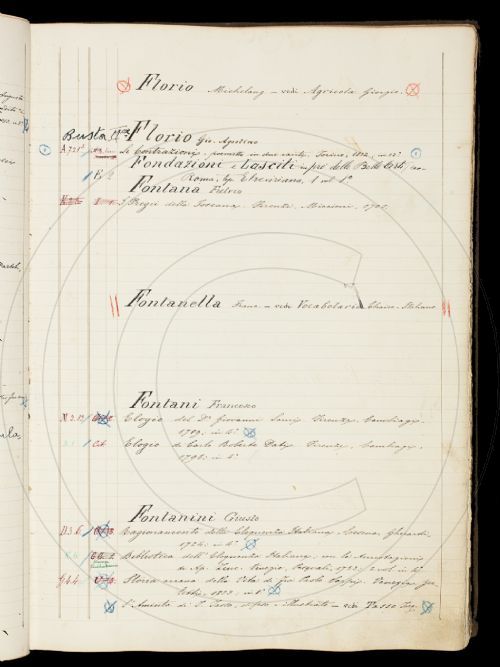 Florio Michelang. — vedi Agricola Giorgio.
Busta
Florio Gio. Agostino
A 721 Le Contrazioni, poemetto in due canti. Torino, in 12°
Fondazioni e Lasciti in pro delle Belle Arti, ecc.
Roma, tip. Elzeviriana, 1 vol. 8°
Fontana Pietro
I Pregi della Toscana. Firenze, 1701,
Fontanella Franc. — vedi Vocabolario Italiano
Fontani Francesco
N 2. Elogio del Dr Giovanni Lami. Firenze, Cambiagi,
1789, in 4°
Elogio di Carlo Roberto Dati. Firenze, Cambiagi,
1794: in 4°
Fontanini Giusto
D 3. 6 Ragionamento della Eloquenza Italiana. Cesena, Gherardi,
1724: in 4°
Biblioteca dell'Eloquenza Italiana, con le Annotazioni
di Ap. Zeno. Venezia, Pasquali, 1753: 2 vol. in 4°
G 4. 4 Storia arcana della Vita di Fra Paolo Sarpi. Venezia,
1803: in 8°
L'Aminta di T. Tasso, difeso e illustrato — vedi Tasso Torq.